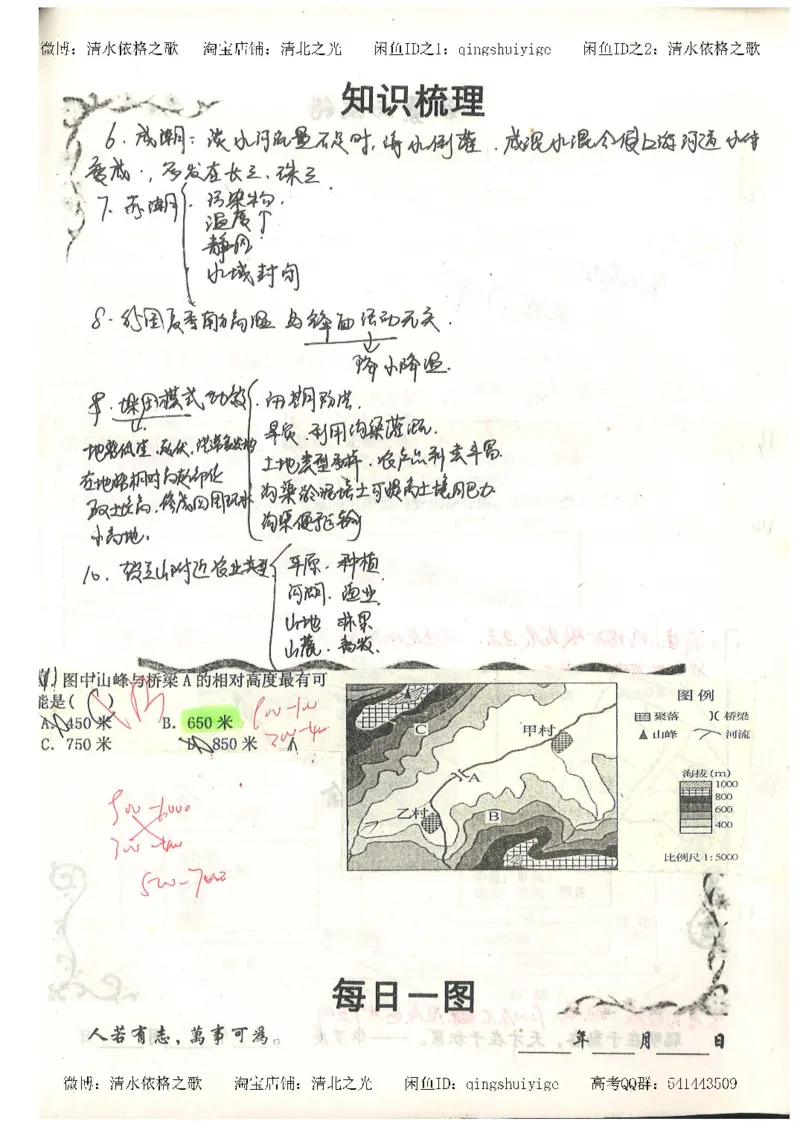 微博：清水依格之歌 淘宝店铺：清北之光 闲鱼ID之1：qingshuiyige 闲鱼ID之2：清水依格之歌
知识梳理
6. 咸潮：淡水河流量不足时，海水倒灌．咸淡水混合使上游河道水体
变咸．，多发在长三、珠三．
7. 赤潮 污染物．
温度↑
静风
水域封闭
8. 我国夏季南方高温 与锋面活动无关．
降水降温．
9. 垛田模式功效 旱灾．利用沟渠灌溉．
地势低洼
土地类型多样．农产品种类丰富
在地势相对高部位
沟渠淤泥培土可提高土壤肥力
小高地．
沟渠便于运输
10. 附近农业类型 平原．种植
河湖．渔业
山地 林果
山麓．畜牧．
图中山峰与桥梁A的相对高度最有可
能是( )
A. 450米 B. 650米
C. 750米 D. 850米
500-700
A
C
甲村
A
乙村
B
图例
聚落 桥梁
山峰 河流
海拔(m)
1000
800
600
400
比例尺 1:5000
每日一图
人若有志，萬事可為。
年 月 日
微博：清水依格之歌 淘宝店铺：清北之光 闲鱼ID：qingshuiyige 高考QQ群：541443509